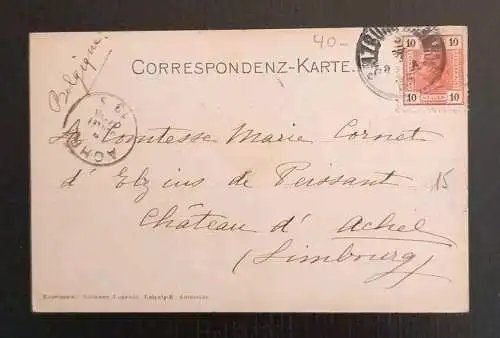 40-
Belgique
CORRESPONDENZ-KARTE.
10 10
10 10
ACH
La Comtesse Marie Cornet
d'Elzius de Peissant
15
Château d'Achel
(Limbourg)